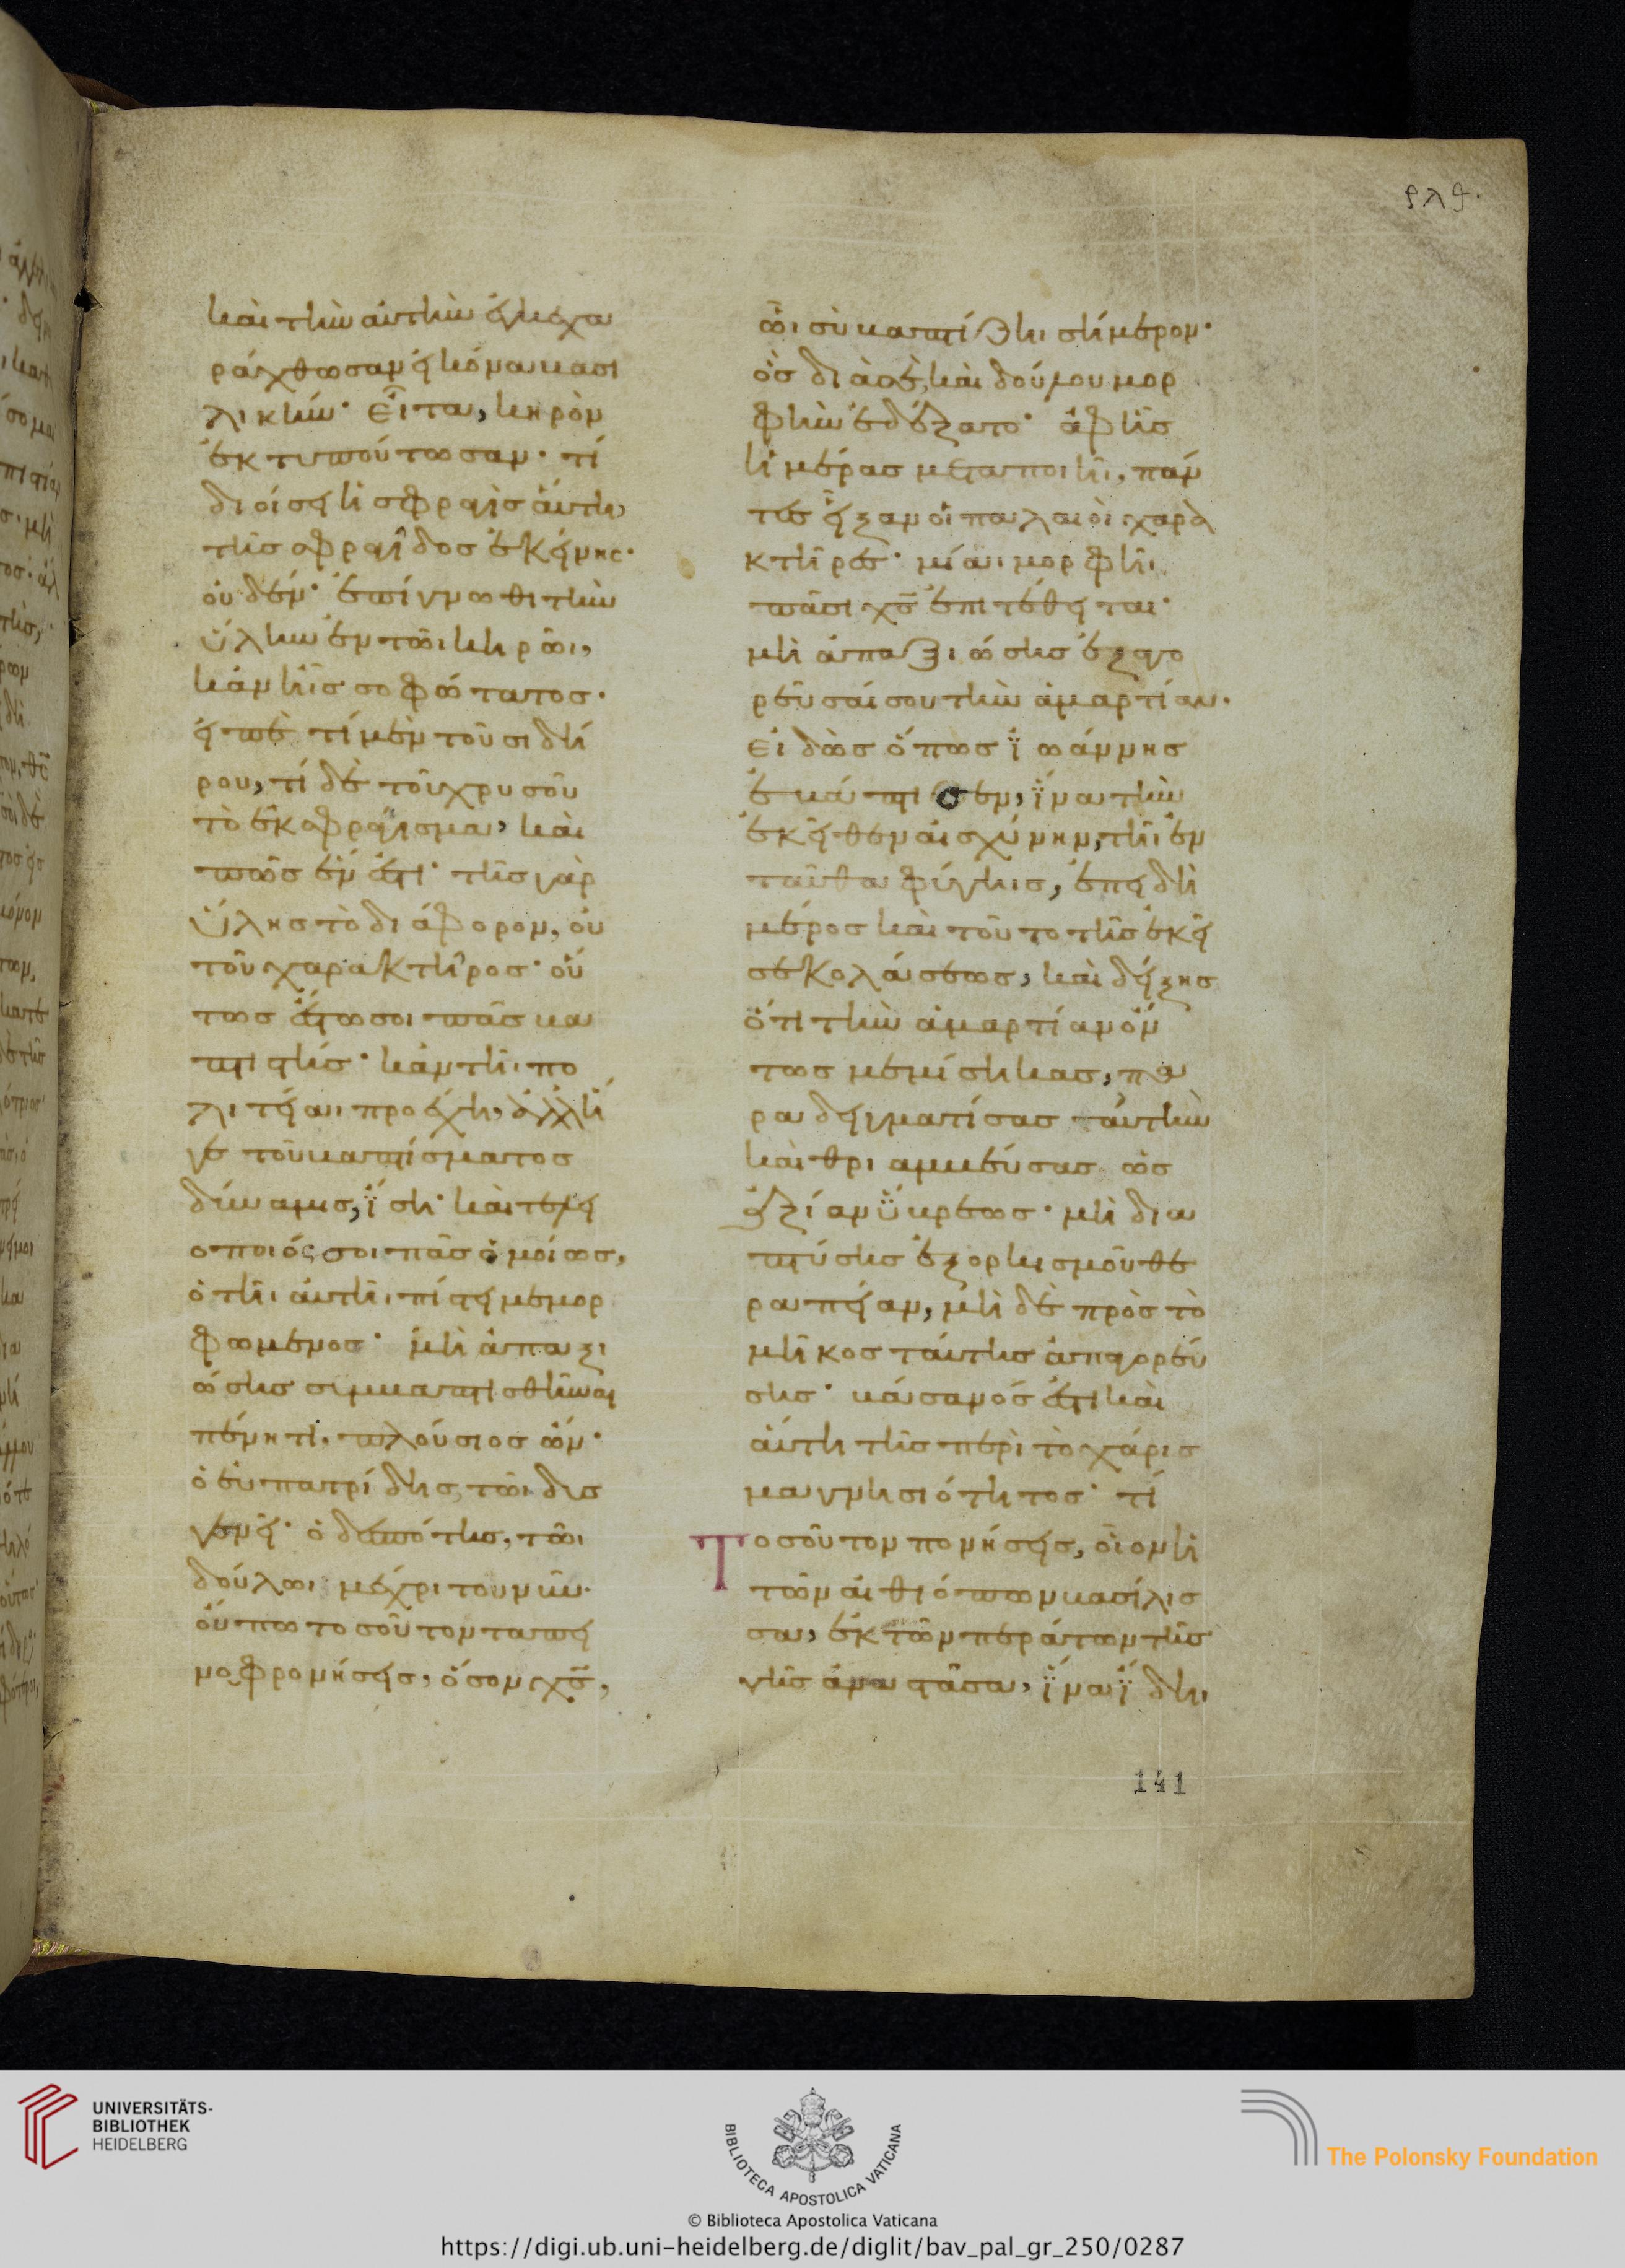 ρλθ·
καὶ τὴν αὐτὴν ἐγκεχα
ράχθωσαν εἰκόνα βασι
λικήν· εἶτα, κηρὸν
ἐκτυπούτωσαν· τί
διοίσει ἡ σφραγὶς αὕτη,
τῆς σφραγῖδος ἐκείνης·
οὐδέν· ἐπίγνωθι τὴν
ὕλην ἐν τῶι κηρῶι,
κἂν ἦις σοφώτατος·
εἰπὲ τί μὲν τοῦ σιδή
ρου, τί δὲ τοῦ χρυσοῦ
τὸ ἐκσφράγισμα, καὶ
πῶς ἕν ἐστι· τῆς γὰρ
ὕλης τὸ διάφορον, οὐ
τοῦ χαρακτῆρος· οὕ
τως ἔστω σοι πᾶς βα
πτιστής· κἂν τῆι πο
λιτείαι προέχηι, ἀλλ' ἥ
γε τοῦ βαπτίσματος
δύναμις, ἴση· καὶ τελει
οποιός σοι πᾶς ὁμοίως,
ὁ τῆι αὐτῆι πίστει μεμορ
φωμένος· μὴ ἀπαξι
ώσης συμβαπτισθῆναι
πένητι, πλούσιος ὤν·
ὁ εὐπατρίδης, τῶι δυσ
γενεῖ· ὁ δεσπότης, τῶι
δούλωι μέχρι του νῦν·
οὔπω τοσοῦτον ταπει
νοφρονήσεις, ὅσον χς,
ὧι σὺ βαπτίζηι σήμερον·
ὃς διὰ σὲ, καὶ δούλου μορ
φὴν ἐδέξατο· ἀφ' ἧς
ἡμέρας μεταποιῆι, πάν
τες εἶξαν οἱ παλαιοὶ χαρα
κτῆρες· μίαι μορφῆι
πᾶσι χς ἐπιτέθειται·
μὴ ἀπαξιώσης ἐξαγο
ρεῦσαί σου τὴν ἁμαρτίαν·
εἰδὼς ὅπως ἰωάννης
ἐβάπτισεν, ἵνα τὴν
ἐκεῖθεν αἰσχύνην, τῆι ἐν
ταῦθα φύγηις, ἐπειδὴ
μέρος καὶ τοῦτο τῆς ἐκεῖ
σε κολάσεως, καὶ δείξης
ὅτι τὴν ἁμαρτίαν ὄν
τως μεμίσηκας, πα
ραδειγματίσας ταύτην
καὶ θριαμβεύσας ὡς
ἀξίαν ὕβρεως· μὴ δια
πτύσης ἐξορκισμοῦ θε
ραπείαν, μὴ δὲ πρὸς τὸ
μῆκος ταύτης ἀπαγορεύ
σης· βάσανός ἐστι καὶ
αὕτη τῆς περὶ τὸ χάρισ
μα γνησιότητος· τί
τοσοῦτον πονήσεις, οἷον ἡ
τῶν αἰθιόπων βασίλισ
σα, ἐκ τῶν περάτων τῆς
γῆς ἀναστᾶσα, ἵνα ἴδηι
141
UNIVERSITÄTS-
BIBLIOTHEK
HEIDELBERG
BIBLIOTECA APOSTOLICA VATICANA
The Polonsky Foundation
© Biblioteca Apostolica Vaticana
https://digi.ub.uni-heidelberg.de/diglit/bav_pal_gr_250/0287